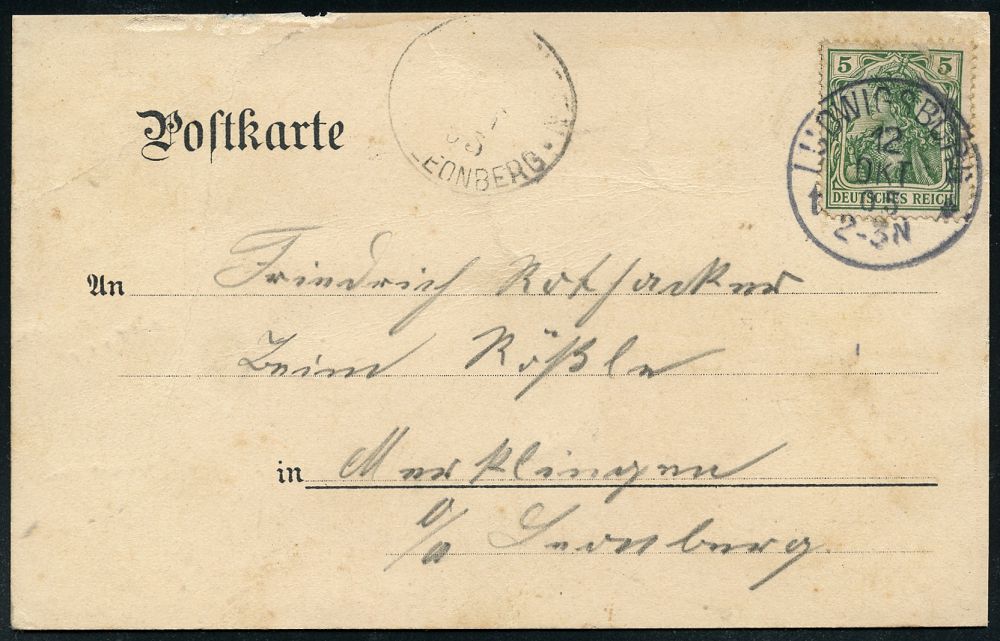 Postkarte
LEONBERG
5 5
DEUTSCHES REICH
LUDWIGSBURG
12
OKT
05
2-3N
An Friedrich Rothacker
Beim Rößle
in Merklingen
O/A Leonberg.